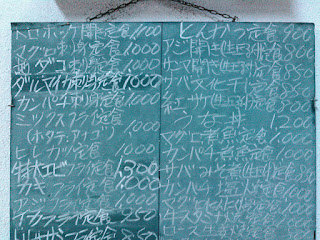 トロホッケ開定食 1,100
マグロ刺身定食 1,000
地ダコ刺身定食 1,000
ダルマイカ刺身定食 1,000
カンパチ刺身定食 1,000
ミックスフライ定食 1,000
(ホタテ、アナゴ)
ヒレカツ定食 1,000
特大エビフライ定食 1,300
カキフライ定食 1,000
アジフライ定食 1,000
イカフライ定食 950
とんカツ定食 900
アジ開き生干し定食 850
サンマ開き生干し定食 850
サバ文化干し定食 800
紅サケ生干定食 800
うな丼 1200
マグロ煮魚定食 1,000
カンパチ煮魚定食 1,000
サバみそ煮定食 850
カンパチ
牛スタミナ
ロース生